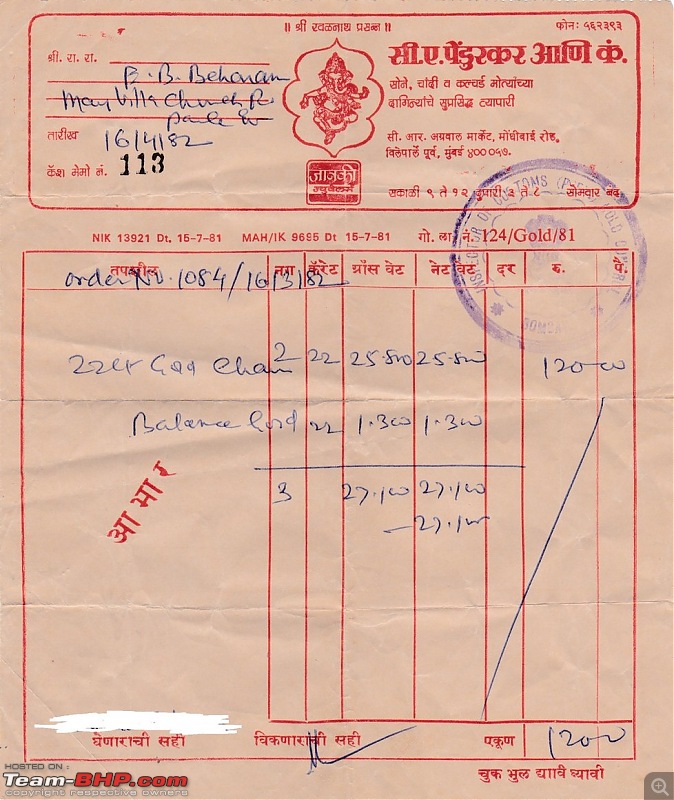 ॥ श्री रवळनाथ प्रसन्न ॥
फोन: ५६२३९३
श्री. रा. रा.
B. B. Behoram
May Villa Church Rd
Parle Et
तारीख 16/4/82
कॅश मेमो नं. 113
जानकी
ज्युवेलर्स
सी.ए.पेंडुरकर आणि कं.
सोने, चांदी व कल्चर्ड मोत्यांच्या
दागिन्यांचे सुप्रसिद्ध व्यापारी
सी. आर. अग्रवाल मार्केट, मोंघीबाई रोड,
विलेपार्ले पूर्व, मुंबई ४०००५७.
सकाळी ९ ते १२ दुपारी ३ ते ८ सोमवार बंद
INSPECTOR OF CUSTOMS GOLD
BOMBAY
NIK 13921 Dt. 15-7-81 MAH/IK 9695 Dt 15-7-81 गो. ला. नं. 124/Gold/81
तपशील नग कॅरेट ग्रॉस वेट नेट वेट दर रु. पै.
order No. 1084/16/3/82
22ct Chain 2 22 25.800 25.800 120-00
Balance Gold 22 1.300 1.300
3 27.100 27.100
- 27.100
आभार
घेणाराची सही विकणाराची सही एकूण 120-0
चुक भुल द्यावी घ्यावी
HOSTED ON :
Team-BHP.com
copyright respective owners